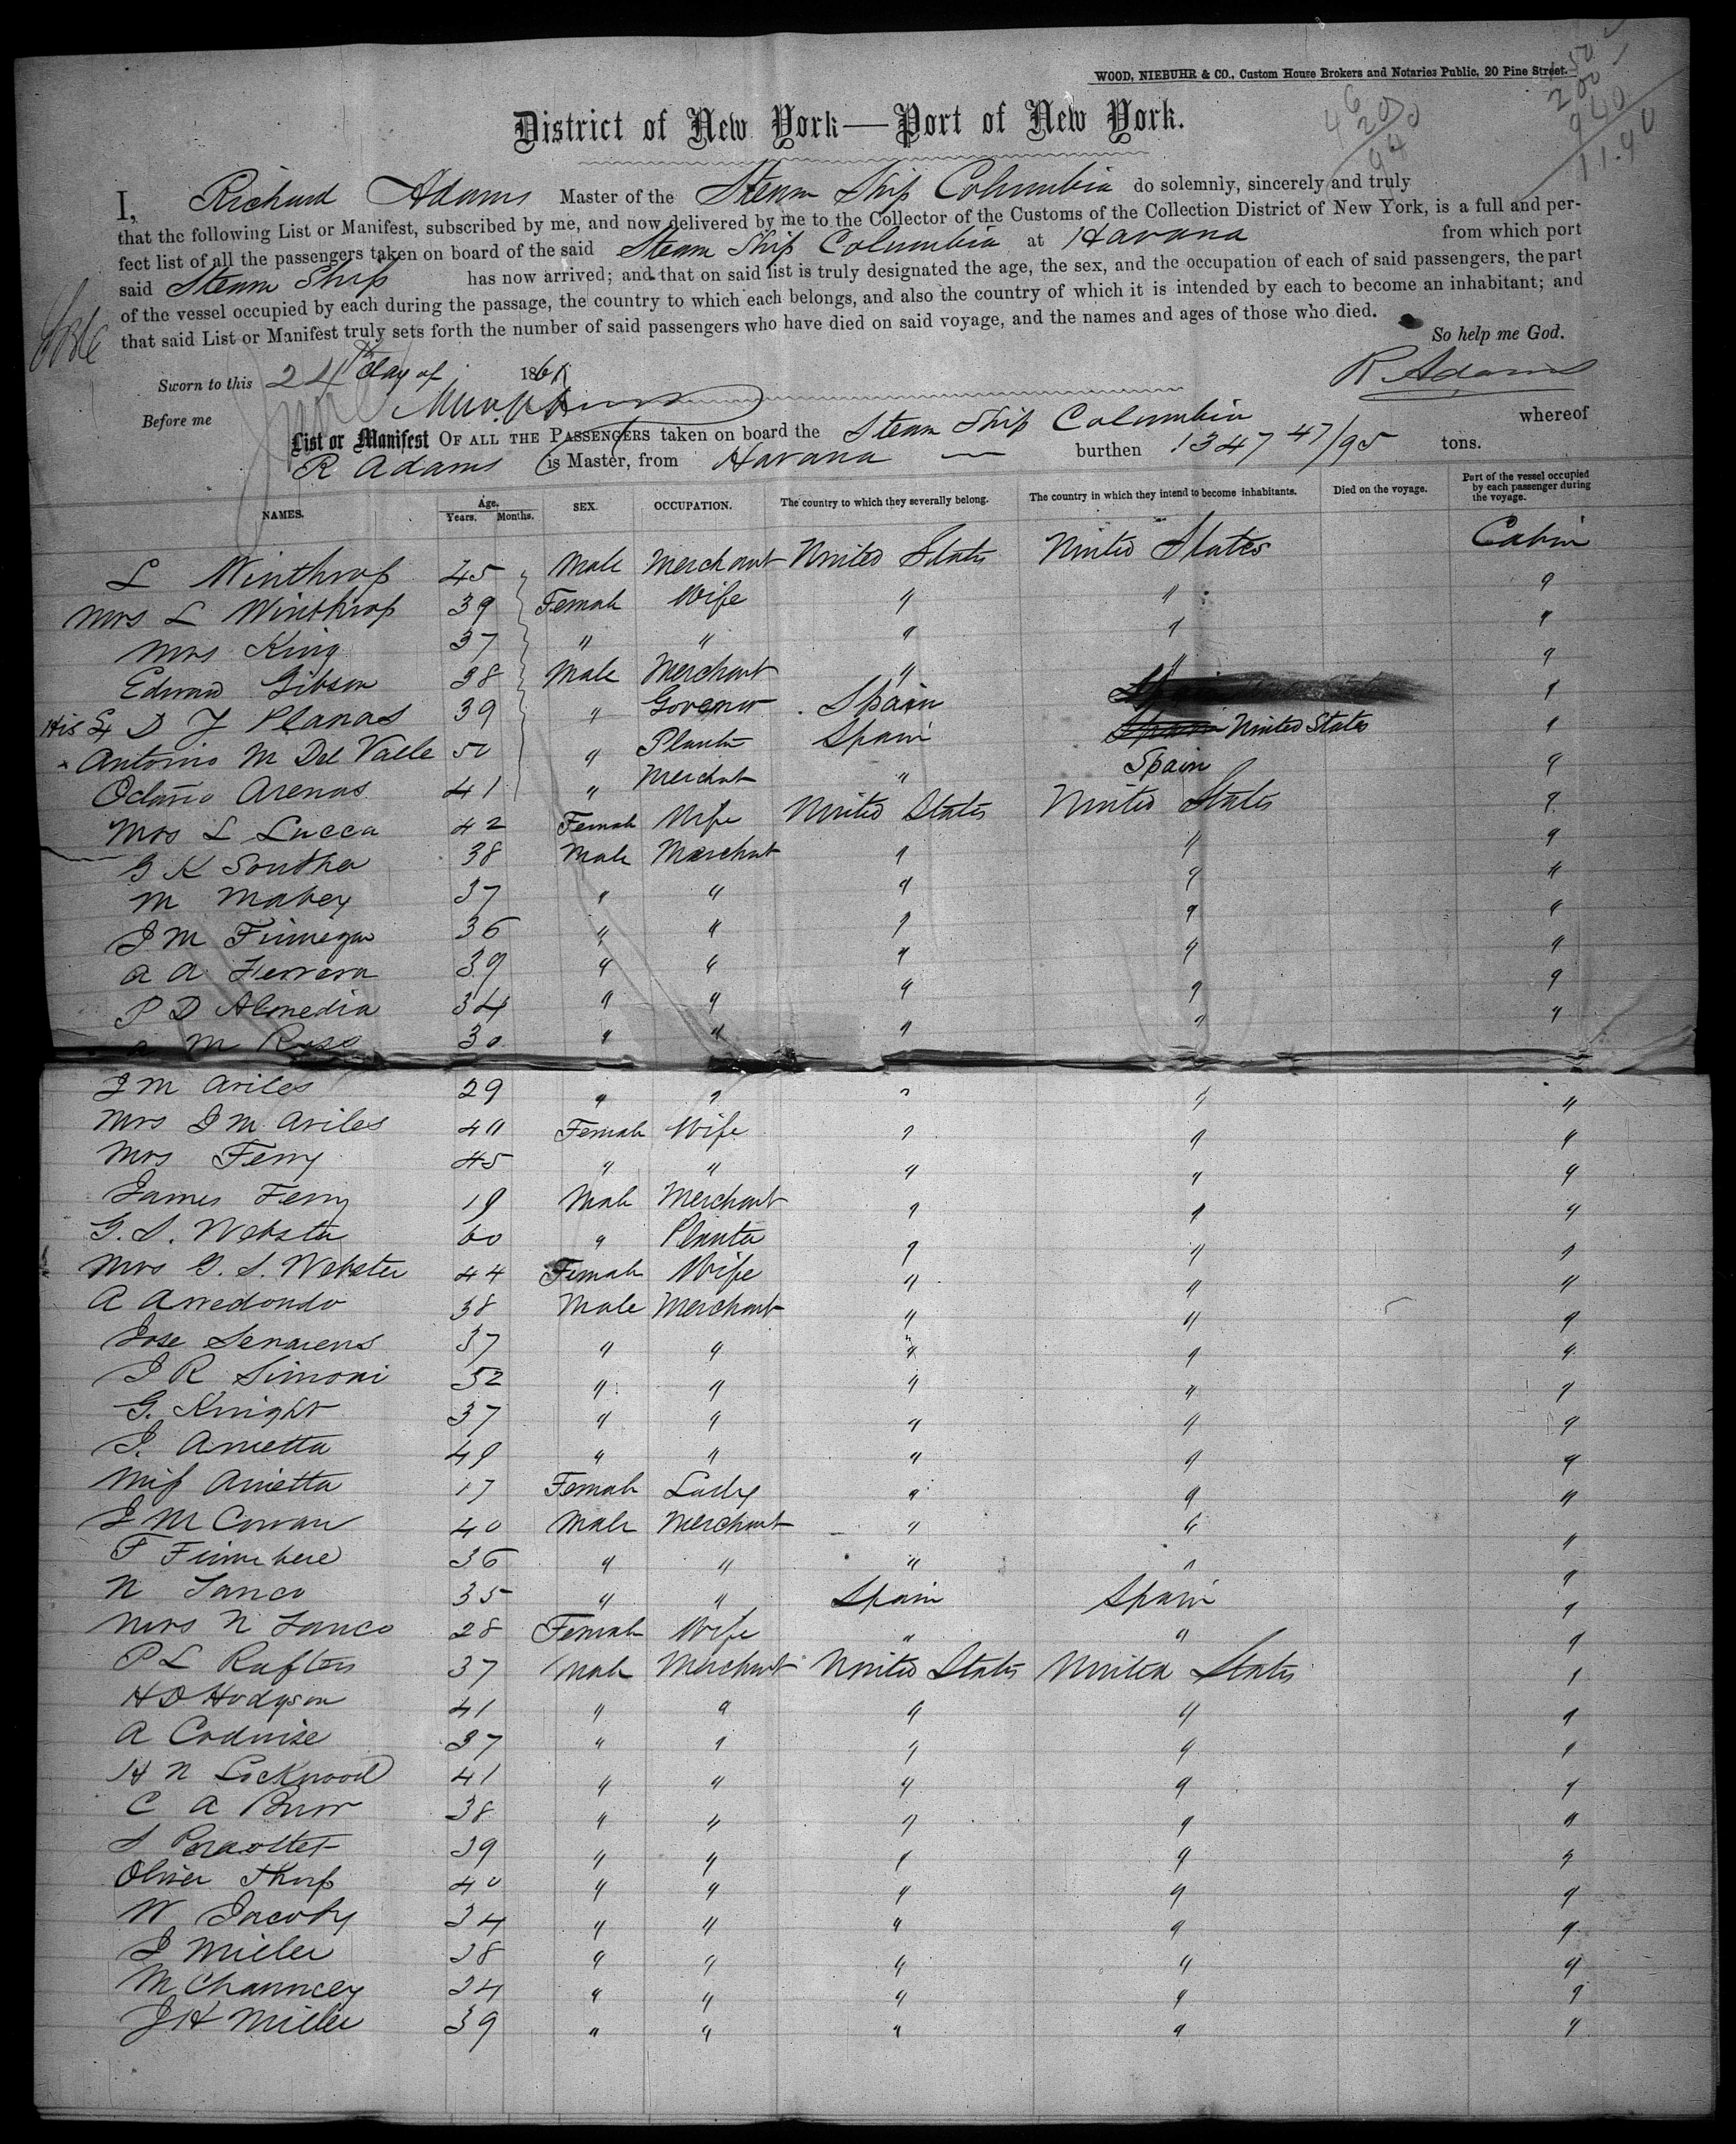 WOOD, NIEBUHR & CO., Custom House Brokers and Notaries Public, 20 Pine Street.
District of New York—Port of New York.
I, Richard Adams Master of the Steam Ship Columbia do solemnly, sincerely and truly
that the following List or Manifest, subscribed by me, and now delivered by me to the Collector of the Customs of the Collection District of New York, is a full and per-
fect list of all the passengers taken on board of the said Steam Ship Columbia at Havana from which port
said Steam Ship has now arrived; and that on said list is truly designated the age, the sex, and the occupation of each of said passengers, the part
of the vessel occupied by each during the passage, the country to which each belongs, and also the country of which it is intended by each to become an inhabitant; and
that said List or Manifest truly sets forth the number of said passengers who have died on said voyage, and the names and ages of those who died.
So help me God.
Sworn to this 24th day of 186 R Adams
Before me
List or Manifest OF ALL THE PASSENGERS taken on board the Steam Ship Columbia whereof
R Adams is Master, from Havana burthen 1347 47/95 tons.
NAMES. Age. Years. Months. SEX. OCCUPATION. The country to which they severally belong. The country in which they intend to become inhabitants. Died on the voyage. Part of the vessel occupied by each passenger during the voyage.
L Winthrop 45 Male Merchant United States United States Cabin
Mrs L Winthrop 39 Female Wife " " "
Mrs King 37 " " " " "
Edward Gibson 38 Male Merchant " " "
His Ex D J Planas 39 " Governor Spain "
Antonio M Del Valle 50 " Planter Spain Spain United States "
Octavio Arenas 41 " Merchant " Spain "
Mrs L Lucca 42 Female Wife United States United States "
G K Souther 38 Male Merchant " " "
M Mabey 37 " " " " "
J M Finnegan 36 " " " " "
A A Ferrera 39 " " " " "
P D Almedia 34 " " " " "
A M Roso 30 " " " " "
J M Aviles 29 " " " " "
Mrs J M Aviles 40 Female Wife " " "
Mrs Ferry 45 " " " " "
James Ferry 19 Male Merchant " " "
G. S. Webster 60 " Planter " " "
Mrs G. S. Webster 44 Female Wife " " "
A Arredondo 38 Male Merchant " " "
Jose Senarens 37 " " " " "
J R Simoni 52 " " " " "
G. Knight 37 " " " " "
J. Arrietta 49 " " " " "
Miss Arrietta 17 Female Lady " " "
J M Cowan 40 Male Merchant " " "
F 36 " " " " "
N Lanco 35 " " Spain Spain "
Mrs N Lanco 28 Female Wife " " "
P L 37 Male Merchant United States United States "
H D Hodgson 41 " " " " "
A Codwise 37 " " " " "
H N Lockwood 41 " " " " "
C A Burr 38 " " " " "
S 39 " " " " "
Oliver Thorp 40 " " " " "
W Jacoby 34 " " " " "
J Miller 28 " " " " "
M Chauncey 24 " " " " "
J H Miller 39 " " " " "